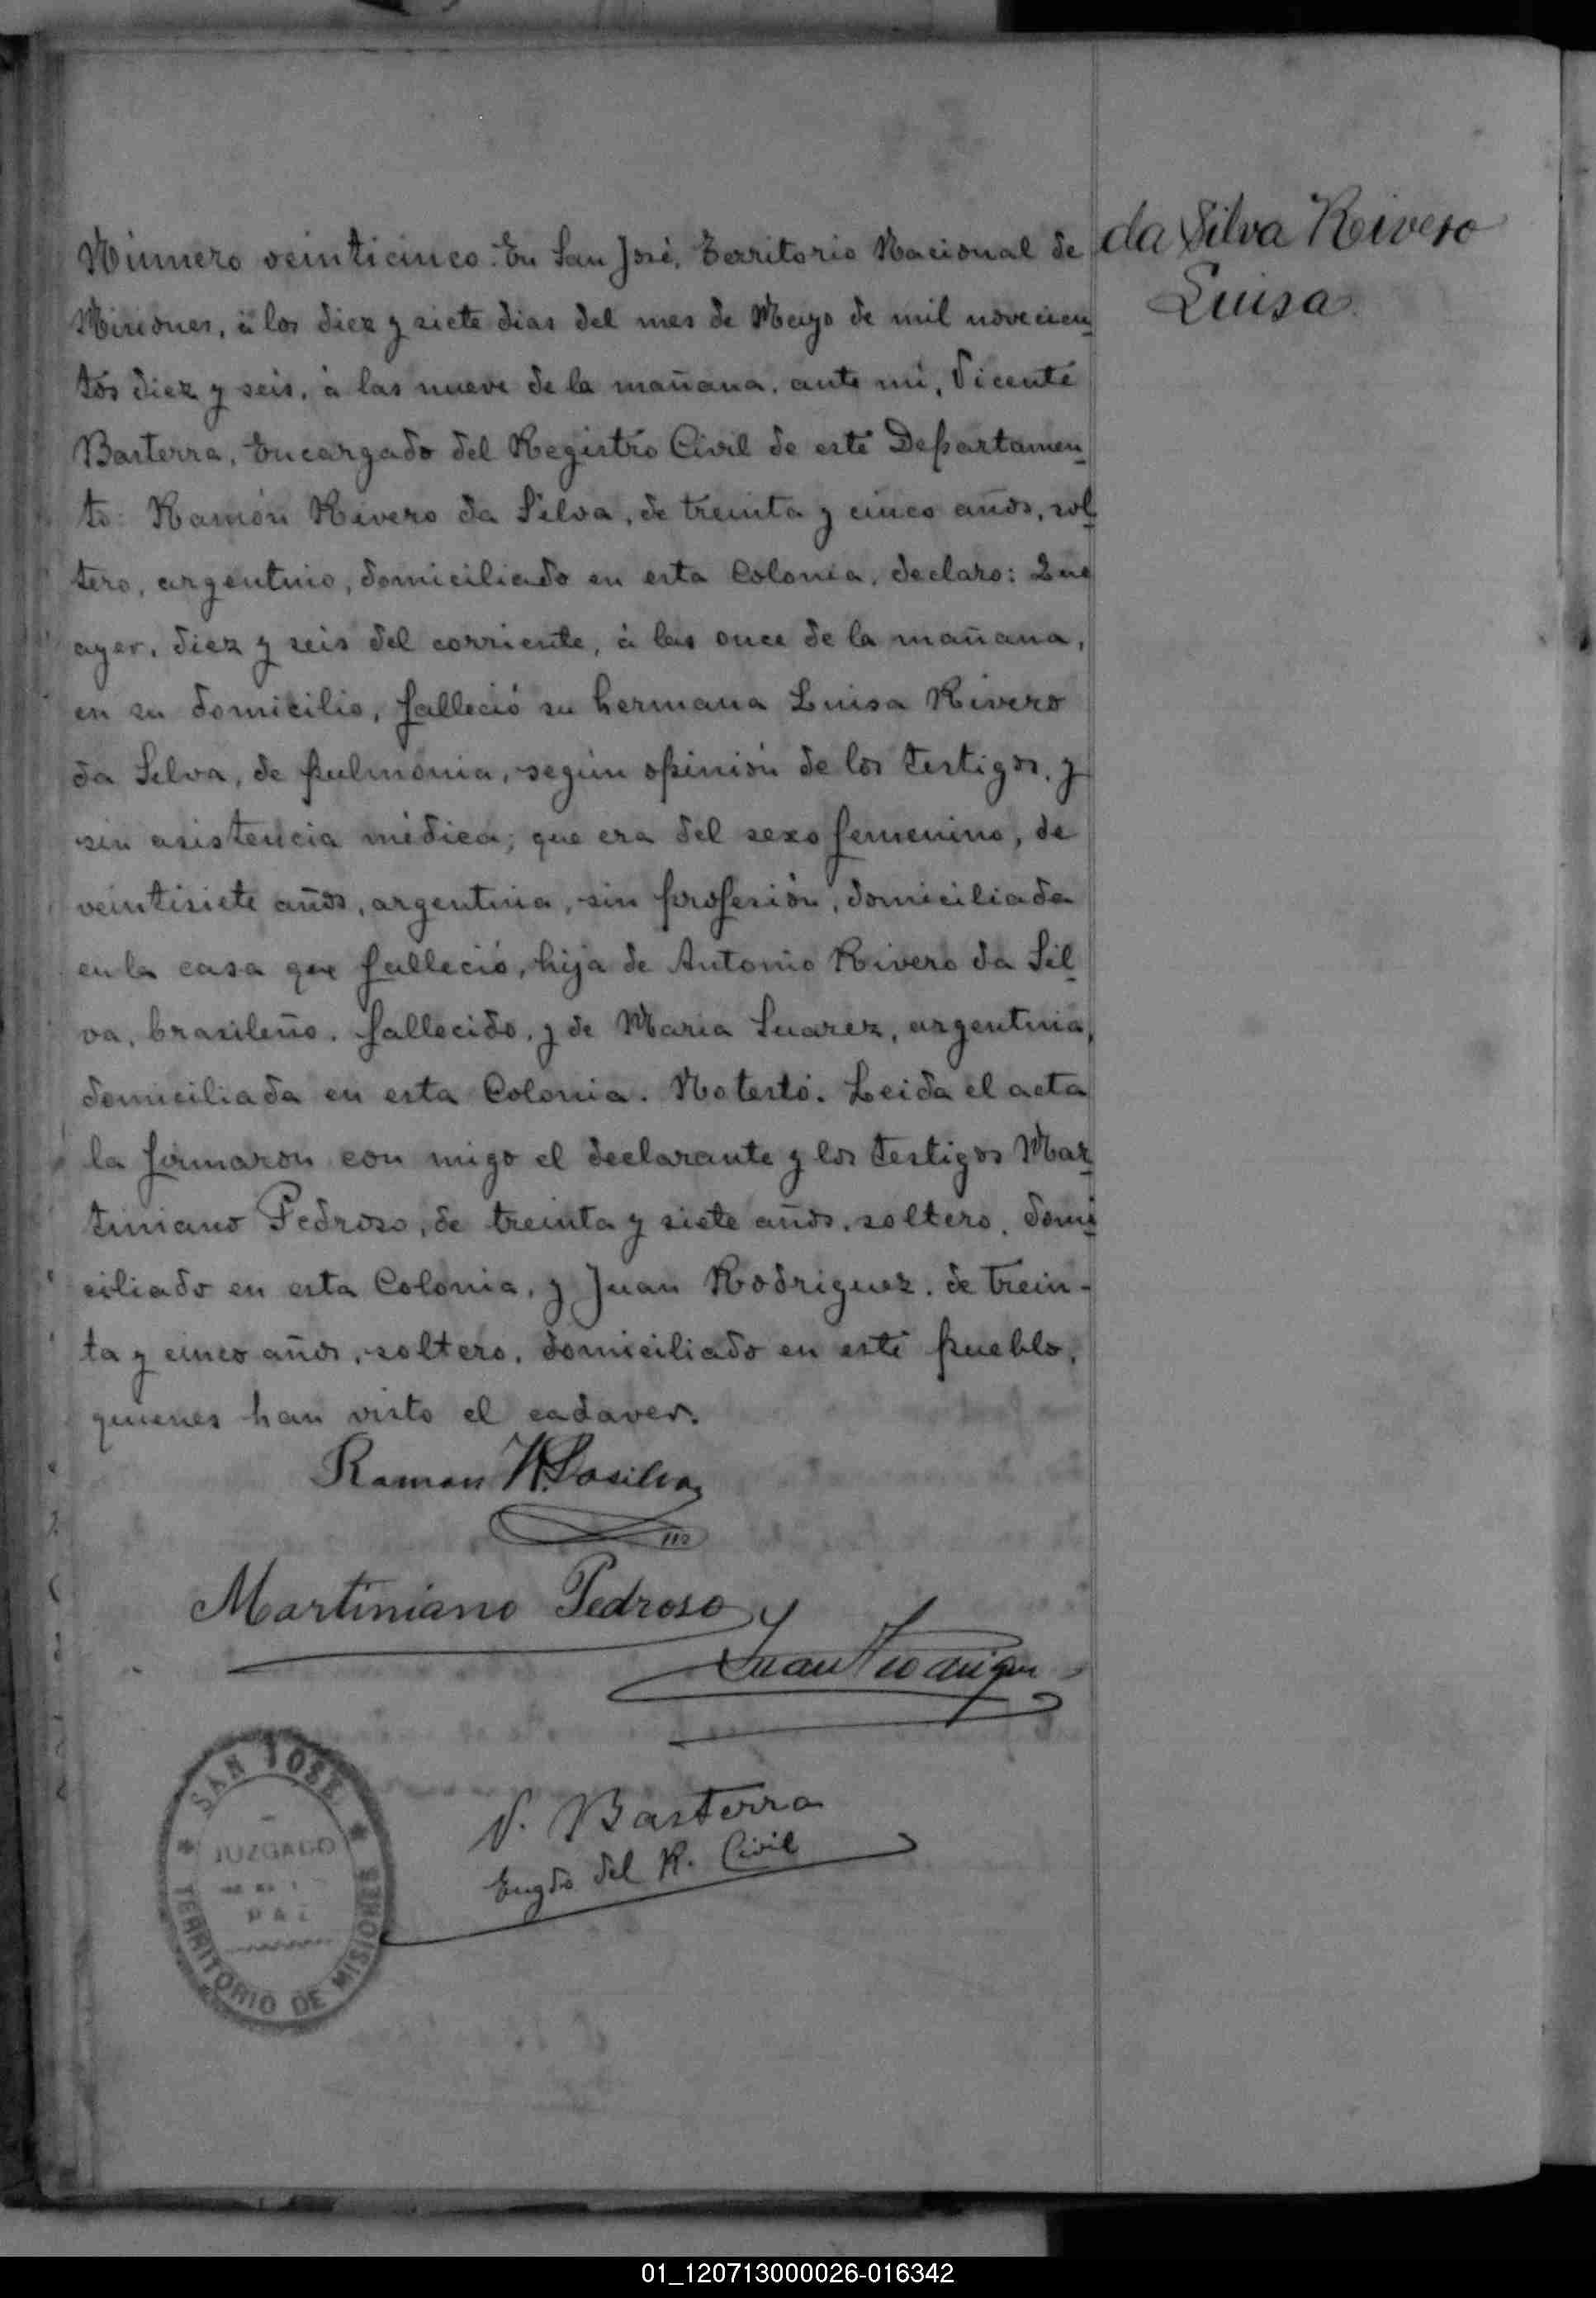 da Silva Rivero
Luisa
Número veinticinco: En San José, Territorio Nacional de
Misiones, á los diez y siete dias del mes de Mayo de mil novecien
tos diez y seis, á las nueve de la mañana, ante mí, Vicente
Basterra, Encargado del Registro Civil de este Departamen
to: Ramón Rivero da Silva, de treinta y cinco años, sol
tero, argentino, domiciliado en esta Colonia, declaro: Que
ayer, diez y seis del corriente, á las once de la mañana,
en su domicilio, falleció su hermana Luisa Rivero
da Silva, de pulmonia, según opinión de los testigos, y
sin asistencia médica; que era del sexo femenino, de
veintisiete años, argentina, sin profesión, domiciliada
en la casa que falleció, hija de Antonio Rivero da Sil
va, brasileño, fallecido, y de Maria Suarez, argentina,
domiciliada en esta Colonia. No testó. Leida el acta
la firmaron con migo el declarante y los testigos Mar
tiniano Pedroso, de treinta y siete años, soltero, domi
ciliado en esta Colonia, y Juan Rodriguez, de trein-
ta y cinco años, soltero, domiciliado en este pueblo,
quienes han visto el cadaver.
Ramon R. Dasilva
Martiniano Pedroso
Juan
SAN JOSE
JUZGADO
PAZ
TERRITORIO DE MISIONES
V. Basterra
Engdo del R. Civil
01_120713000026-016342